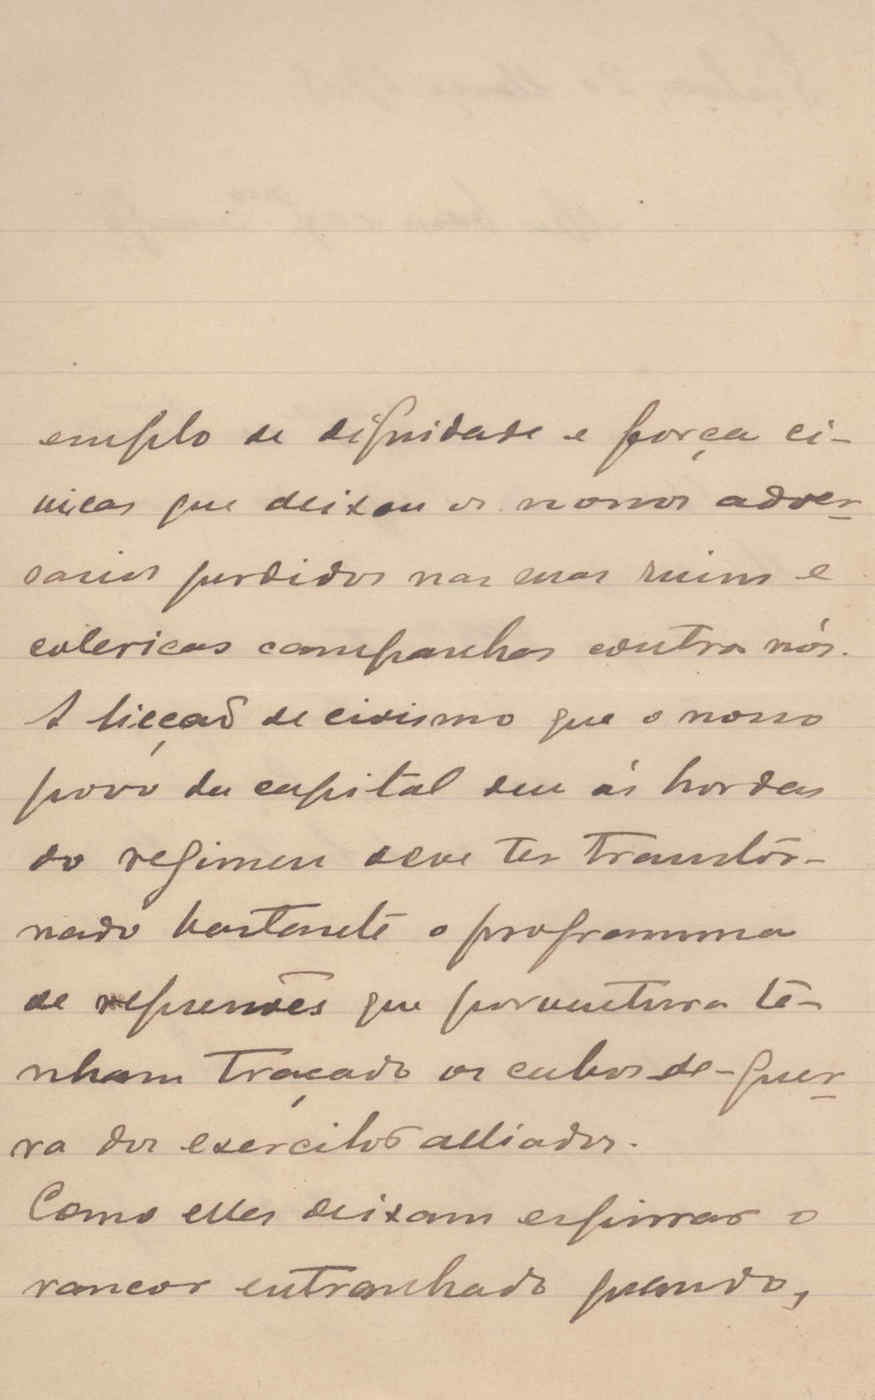 emplo de dignidade e força ci-
vicas que deixou os nossos adver-
sarios perdidos nas suas ruins e
colericas campanhas contra nós.
A licçaõ de civismo que o nosso
povo da capital deu ás hordas
do regimen deve ter transtôr-
nado bastante o programma
de repressões que porventura te-
nham traçado os cabos-de-guer-
ra dos exercitos alliados.
Como elles deixam espirrar o
rancor entranhado quando,